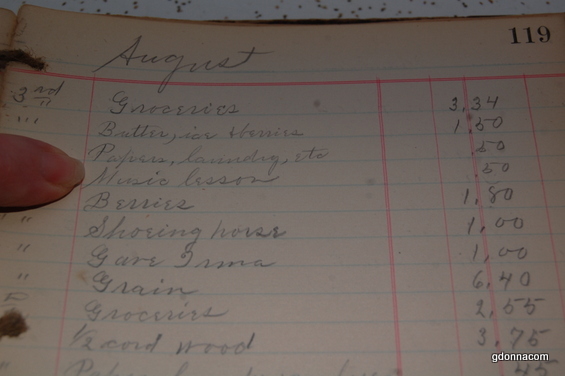 119
August
3rd Groceries 3.34
" Butter, ice & berries 1.50
Papers, laundry, etc .50
Music lesson .50
Berries 1.80
" Shoeing horse 1.00
" Gave Irma 1.00
" Grain 6.40
Groceries 2.55
1/2 cord wood 3.75
" 45
gdonnacom